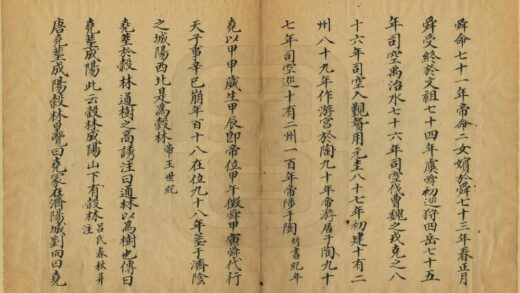 舜命七十一年帝命二女嬪於舜七十三年春正月
舜受終於文祖七十四年虞舜初巡狩四岳七十五
年司空禹治水七十六年司空伐曹魏之戎克之八
十六年司空入覲贄用元圭八十七年初建十有二
州八十九年作游宮於陶九十年帝游居于陶九十
七年司空巡十有二州一百年帝陟于陶 竹書紀年
堯以甲申歲生甲辰即帝位甲午徵舜甲寅舜代行
天子事辛巳崩年百十八在位九十八年葬于濟陰
之城陽西北是為穀林 帝王世紀
堯葬於穀林通樹之高誘注曰通林以為樹也傳曰
堯葬成陽此云穀林成陽山下有穀林 呂氏春秋并注
唐堯葬成陽穀林皇覽曰堯冢在濟陽城劉向曰堯